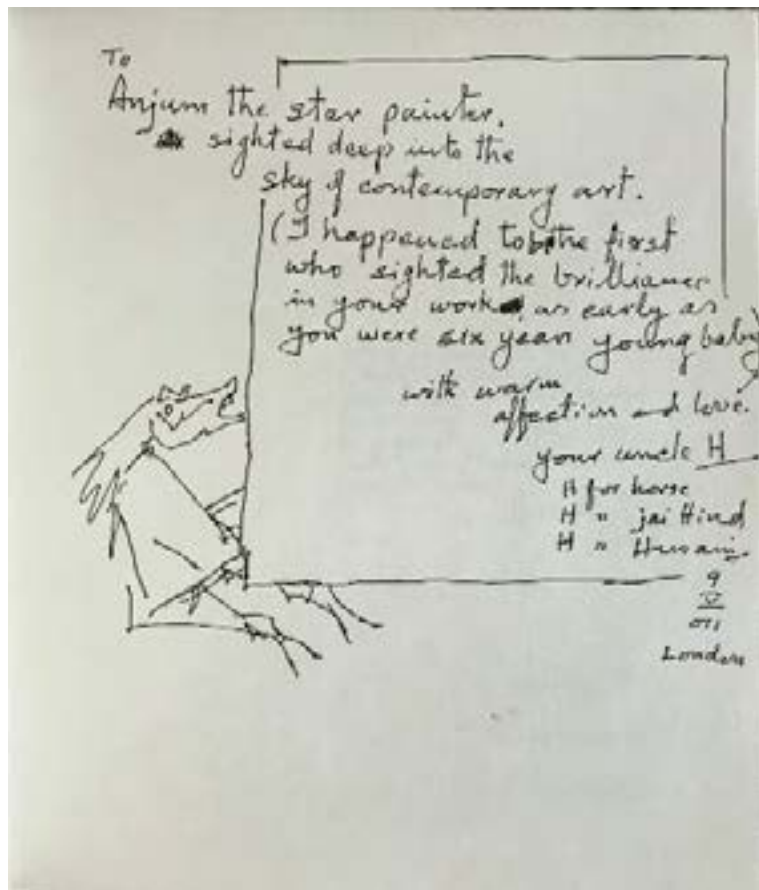 To
Anjum the star painter.
sighted deep into the
sky of contemporary art.
(I happened to be the first
who sighted the brilliance
in your work, as early as
you were six year young baby)
with warm
affection and love.
your uncle H
H for horse
H " jai Hind
H " Husain
9
V
011
London